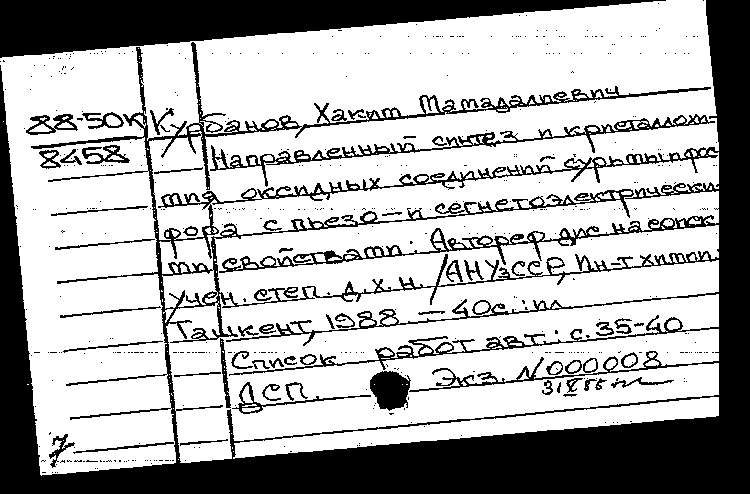 88-50К Курбанов, Хаким Мамадалиевич
8458 Направленный синтез и кристаллохи-
мия оксидных соединений сурьмы и фос
фора с пьезо- и сегнетоэлектрически-
ми свойствами: Автореф дис на соиск
учен. степ. д. х. н. / АН УзССР, Ин-т химии.
Ташкент, 1988. - 40с.: ил
Список работ авт.: с. 35-40
ДСП. Экз. N 000008
7